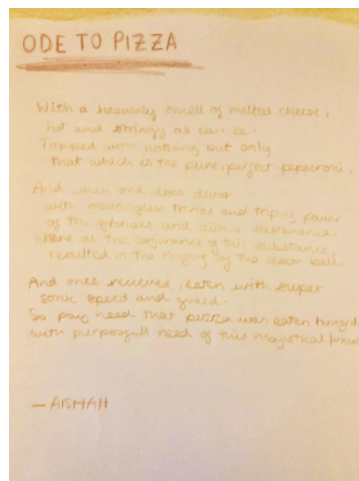 ODE TO PIZZA
With a heavenly smell of melted cheese,
hot and stringy as can be.
Topped with nothing but only
that which is the pure, perfect pepperoni.
And when one does
with and power
of the glorious and divine
as the of this substance,
resulted in the ringing of the door bell.
And once recieved, eaten with super
sonic speed and greed.
So pay heed that pizza was eaten
with need of this majestical
— AISHAH